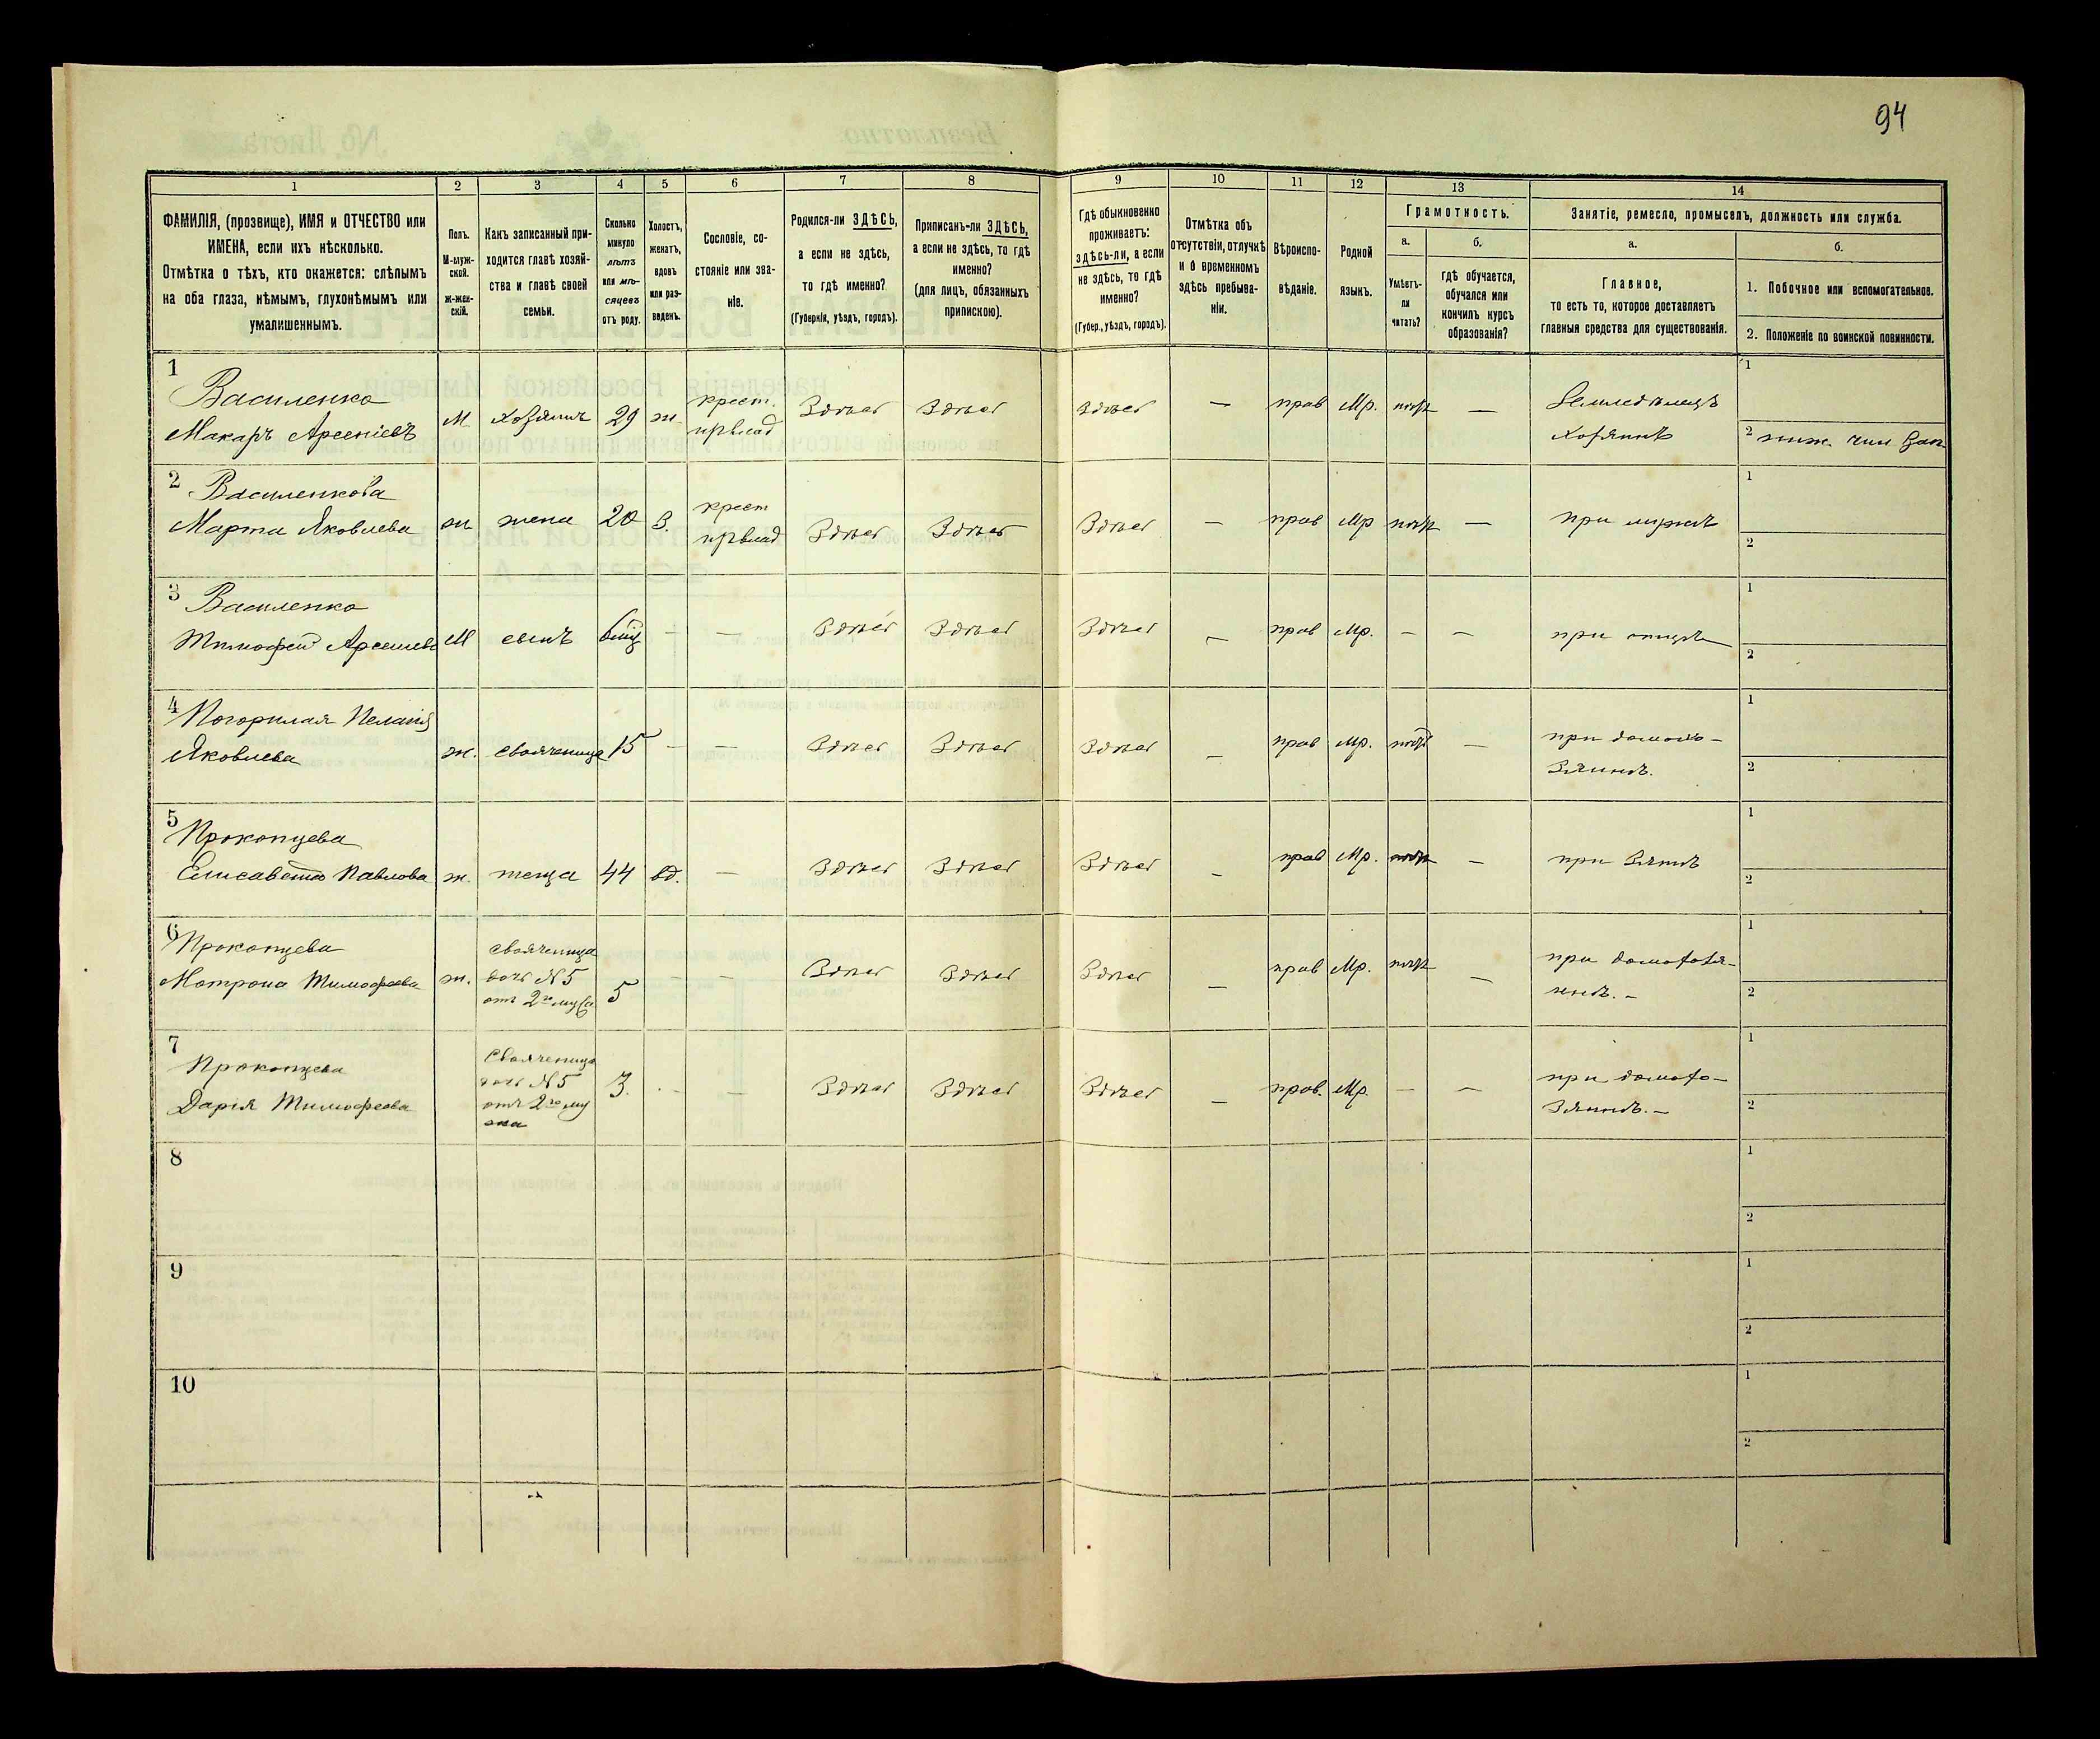 94
1 2 3 4 5 6 7 8 9 10 11 12 13 14
ФАМИЛІЯ, (прозвище), ИМЯ и ОТЧЕСТВО или
ИМЕНА, если ихъ нѣсколько.
Отмѣтка о тѣхъ, кто окажется: слѣпымъ
на оба глаза, нѣмымъ, глухонѣмымъ или
умалишеннымъ.
Полъ.
М-муж-
ской.
Ж-жен-
скій.
Какъ записанный при-
ходится главѣ хозяй-
ства и главѣ своей
семьи.
Сколько
минуло
лѣтъ
или мѣ-
сяцевъ
отъ роду.
Холостъ,
женатъ,
вдовъ
или раз-
веденъ.
Сословіе, со-
стояніе или зва-
ніе.
Родился-ли ЗДѢСЬ,
а если не здѣсь,
то гдѣ именно?
(Губернія, уѣздъ, городъ).
Приписанъ-ли ЗДѢСЬ,
а если не здѣсь, то гдѣ
именно?
(для лицъ, обязанныхъ
припискою).
Гдѣ обыкновенно
проживаетъ:
здѣсь-ли, а если
не здѣсь, то гдѣ
именно?
(Губер., уѣздъ, городъ).
Отмѣтка объ
отсутствіи, отлучкѣ
и о временномъ
здѣсь пребыва-
ніи.
Вѣроиспо-
вѣданіе.
Родной
языкъ.
Грамотность.
а.
Умѣетъ-
ли
читать?
б.
гдѣ обучается,
обучался или
кончилъ курсъ
образованія?
Занятіе, ремесло, промыселъ, должность или служба.
а.
Главное,
то есть то, которое доставляетъ
главныя средства для существованія.
б.
1. Побочное или вспомогательное.
2. Положеніе по воинской повинности.
1
Василенко
Макаръ Арсеніевъ
М
хозяинъ
29
ж
крест.
првлад
Здѣсь
Здѣсь
Здѣсь
—
прав
Мр.
—
Земледѣлецъ
Хозяинъ
1
2 ниж. чин Зап.
2
Василенкова
Марта Яковлева
ж
жена
20
З.
крест
првлад
Здѣсь
Здѣсь
Здѣсь
—
прав
Мр
—
при мужѣ
1
2
3
Василенко
Тимофей Арсениевъ
М
сынъ
—
—
Здѣсь
Здѣсь
Здѣсь
—
прав
Мр.
—
—
при отцѣ
1
2
4
Погорилая Пелагія
Яковлева
ж.
свояченица
15
—
—
Здѣсь
Здѣсь
Здѣсь
—
прав
Мр.
—
при домохо-
зяинѣ.
1
2
5
Прокопцева
Елисавета Павлова
ж.
теща
44
вд.
—
Здѣсь
Здѣсь
Здѣсь
—
прав
Мр.
—
при Зятѣ
1
2
6
Прокопцева
Мотрона Тимофеева
ж.
свояченица
дочь №5
отъ 2го мужа
5
—
—
Здѣсь
Здѣсь
Здѣсь
—
прав
Мр.
—
при домохозя-
инѣ. —
1
2
7
Прокопцева
Дарія Тимофеева
Свояченица
дочь №5
отъ 2го му
жа
3.
—
—
Здѣсь
Здѣсь
Здѣсь
—
прав.
Мр.
—
—
при домохо-
зяинѣ. —
1
2
8
1
2
9
1
2
10
1
2